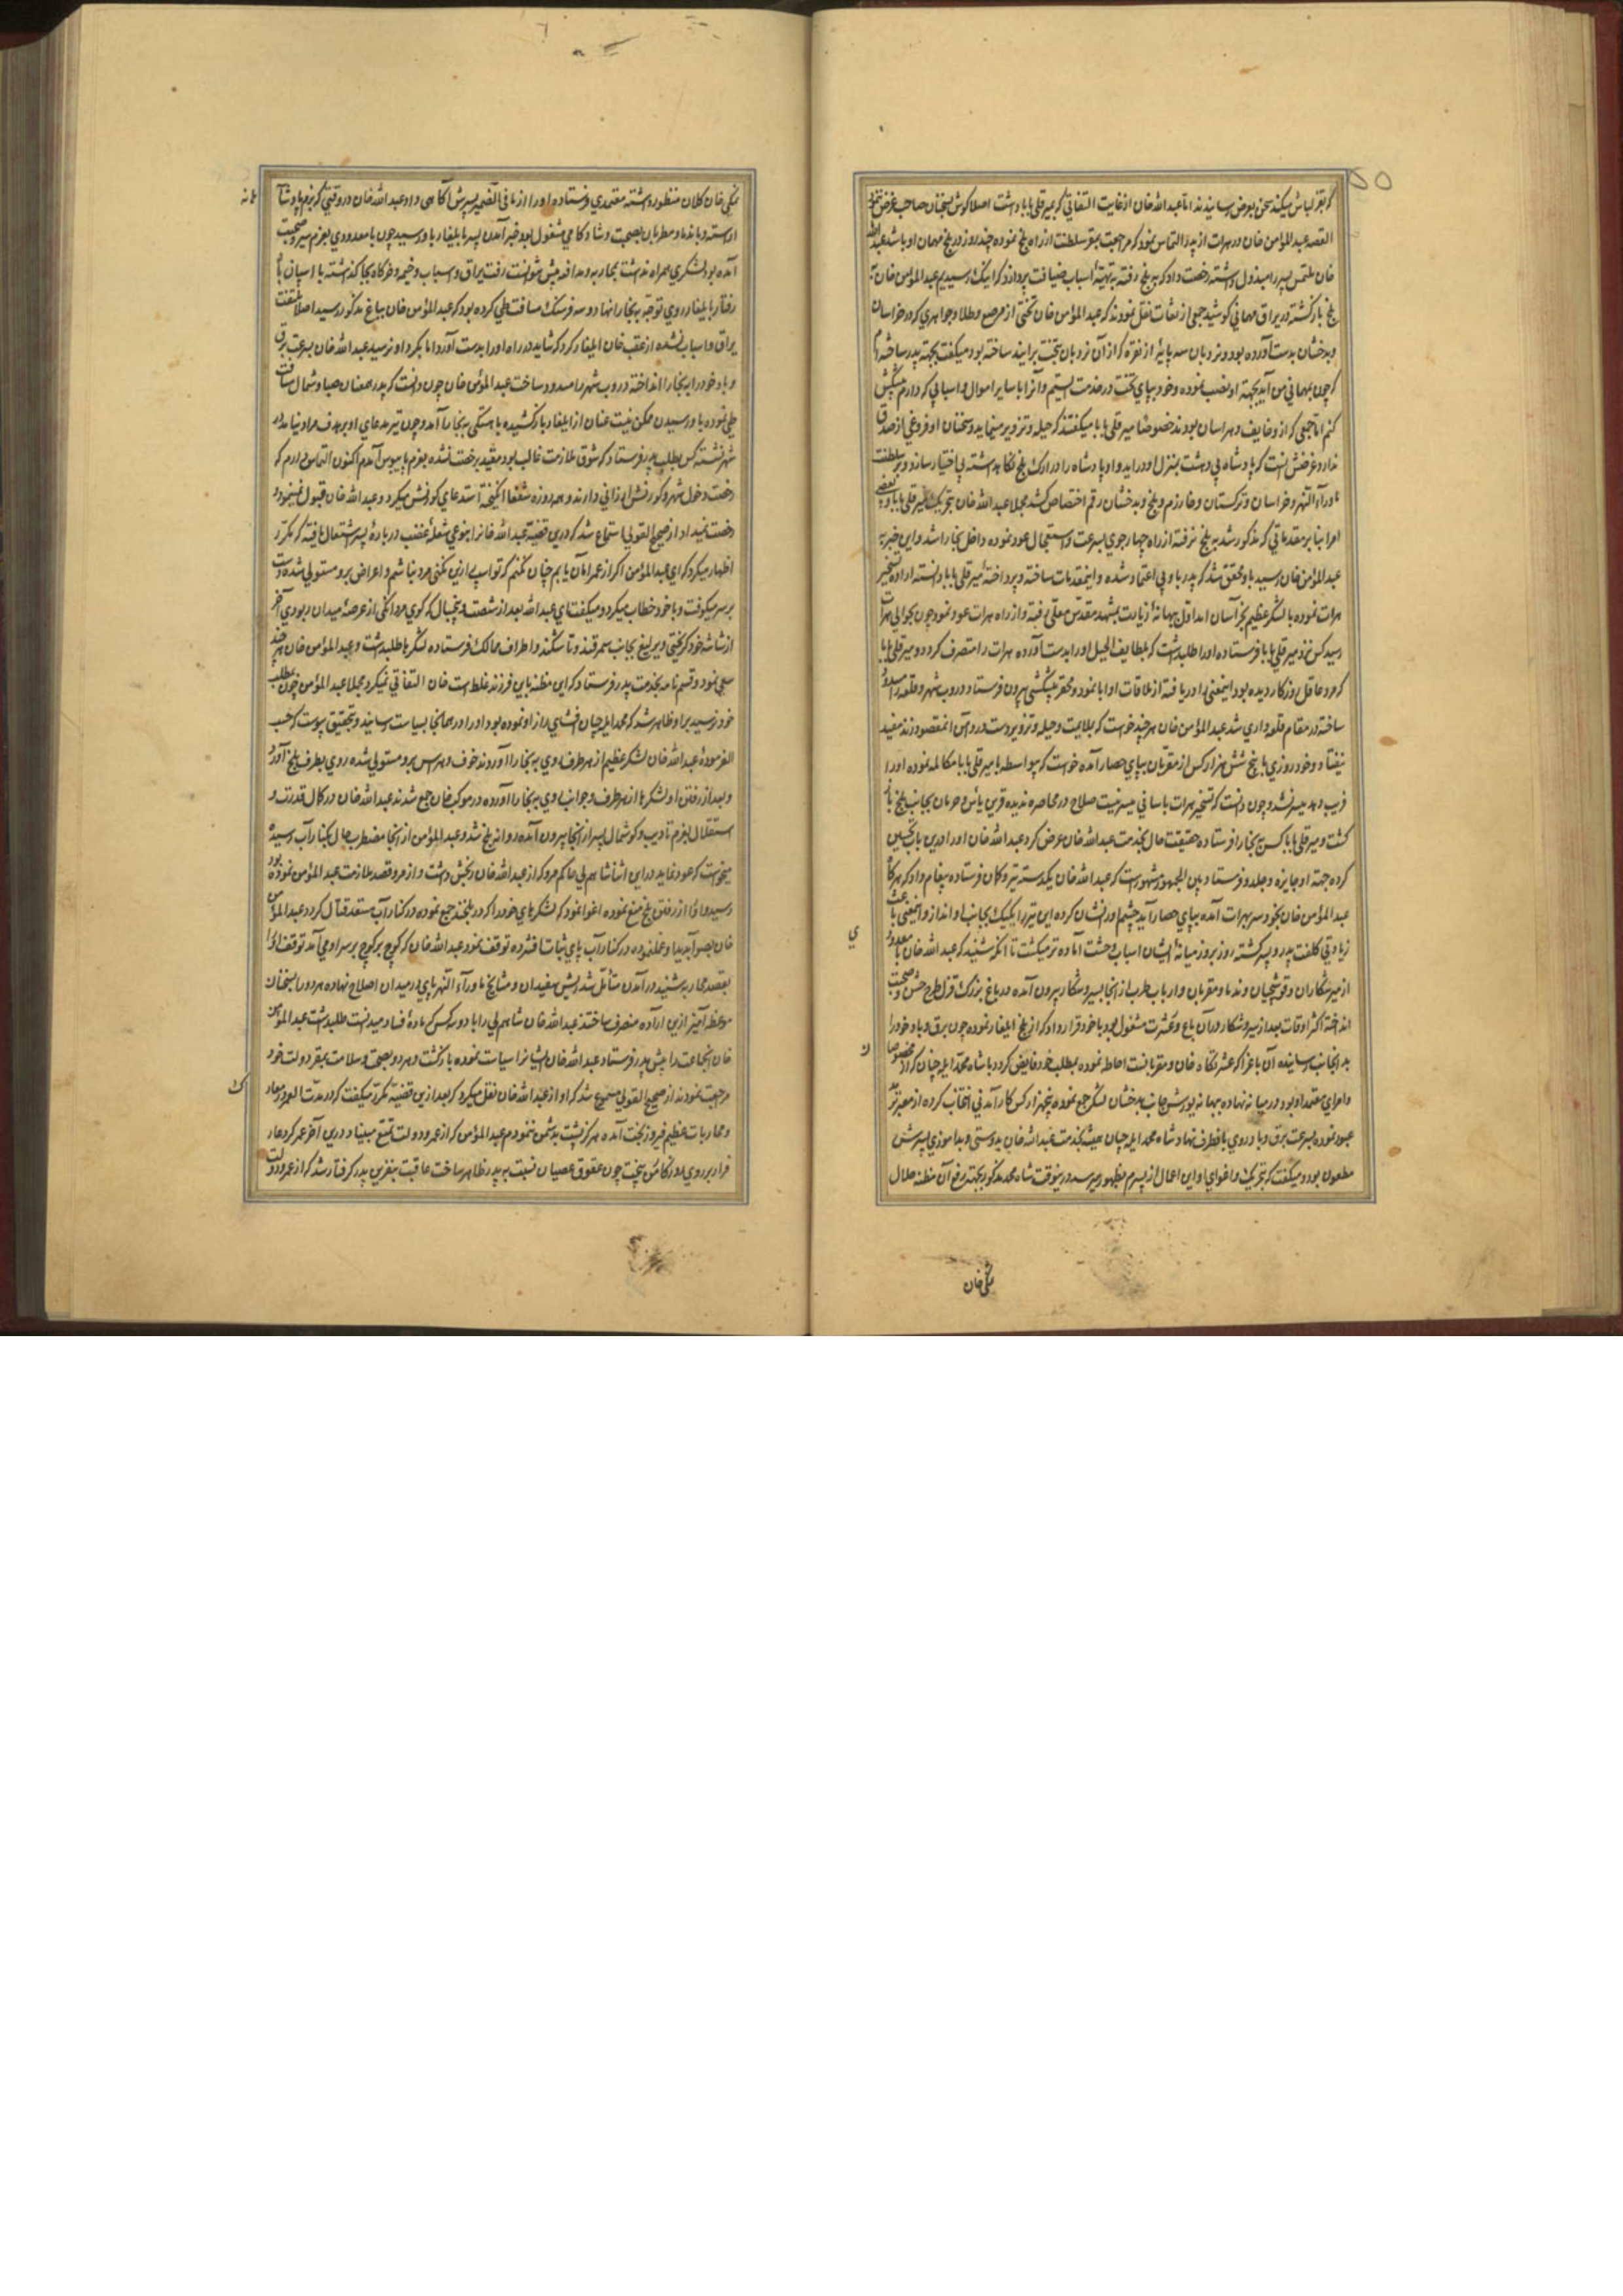 ۵۰
القصه عبدالمؤمن خان در هرات از پدر التماس نمود که مراجعت بمقر سلطنت از راه بلخ نموده چند روز در بلخ مهمان او باشد عبدالله
خان ملتمس پسر را مبذول داشته رخصت داد که به بلخ رفته به تهیه اسباب ضیافت پردازد که اینک رسیدیم عبدالمؤمن خان
بلخ بازگشته در یراق مهمانی کوشید جمعی از ثقات نقل نمودند که عبدالمؤمن خان تختی از مرصع و طلا و جواهری که در خراسان
و بدخشان بدست آورده بود و نردبان سه پایهٔ از نقره که از آن نردبان بتخت برآیند ساخته بود میگفت بجهته پدر ساخته ام
که چون بمهمانی من آید بجهته او نصب نموده و خود بپای تخت در خدمت ایستم و آنرا با سایر اموال و اسبابی که دارم پیشکش
کنم اما جمعی که از و خایف و هراسان بودند خصوصا میر قلی بابا میگفتند که حیله و تزویر مینماید و سخنان او فروغی از صدق
ندارد و غرضش آنست که پادشاه بی دهشت بمنزل او در آید و او پادشاه را در ارک بلخ نگاهداشته بی اختیار سازد و بر سلطنت
ماوراءالنهر و خراسان و ترکستان و خوارزم و بلخ و بدخشان رقم اختصاص کشد مجملا عبدالله خان بتحریک میر قلی بابا و بعضی
امرا بنا بر مقدماتی که مذکور شد به بلخ نرفته از راه چهارجوی بسرعت و استعجال عود نموده داخل بخارا شد و این خبر به
عبدالمؤمن خان رسید با و محقق شد که پدر با وبی اعتماد شده و اینمقدمات ساخته و پرداختهٔ میر قلی بابا دانسته اراده تسخیر
هرات نموده با لشکر عظیم بخراسان آمد اول ببهانهٔ زیارت بمشهد مقدس معلی رفته و از راه هرات عود نمود چون بحوالی هرات
رسید کس نزد میر قلی بابا فرستاده او را طلبداشت که بلطایف الحیل او را بدست آورده هرات را متصرف گردد و میر قلی بابا
که مرد عاقل روزگار دیده بود اینمعنی را دریافته از ملاقات او ابا نمود و محقر پیشکشی بیرون فرستاد و دروب شهر و قلعه را مسدود
ساخته در مقام قلعه داری شد عبدالمؤمن خان هر چند خواست که بملایمت و حیله و تزویر دست در دامن آنمقصود زند مفید
نیفتاد و خود روزی با پنج شش هزار کس از مقربان بپای حصار آمده خواست که بواسطه با میر قلی بابا مکالمه نموده او را
فریب دهد میسر نشد و چون دانست که تسخیر هرات باسانی میسر نیست صلاح در محاصره ندیده قرین یأس و حرمان بجانب بلخ باز
گشت و میر قلی بابا کس به بخارا فرستاده حقیقت حال بخدمت عبدالله خان عرض کرد عبدالله خان او را درین باب تحسین
کرده جهته او جایزه و جلدو فرستاد و بین الجمهور مشهور است که عبدالله خان یکدسته تیر و کمان فرستاده پیغام داد که هرگاه
عبدالمؤمن خان بخود سر بهرات آمده بپای حصار آید چشم او را نشان کرده این تیر را یکیک بجانب او انداز و اینمعنی باعث
زیادتی کلفت پدر و پسر گشته روز بروز میانهٔ ایشان اسباب وحشت آماده تر میگشت تا آنکه شنید که عبدالله خان با معدود
ی
از میرشکاران و قوشچیان و ندما و مقربان و ارباب طرب از انجا بسیر و شکار بیرون آمده در باغ بزرگ قزل طرح جشن و صحبت
انداخته اکثر اوقات بعد از سیر و شکار در آن باغ و عشرت مشغول بود با خود قرار داد که از بلخ ایلغار نموده چون برق و باد خود را
ن
و امرای معتمد او بود در میانه نهاده ببهانه یورش جانب بدخشان لشکر جمع نموده پنجهزار کس کار آمدنی انتخاب کرده از معبر ترمذ
عبور نموده بسرعت برق و باد روی بانطرف نهاد و شاه محمد ایلچیان همیشه بخدمت عبدالله خان بدوستی و بدآموزی پسرش
مطعون بود و میگفت که بتحریک و اغوای او این اعمال از پسرم بظهور میرسد درینوقت شاه محمد مذکور بجهته رفع آن مظنه ملال
نکی خان
نکی خان کلان منظور داشته معتمدی فرستاده او را از ما فی الضمیر پسرش آگاهی داد عبدالله خان در وقتی که بزم پادشا
هانه
آراسته و با ندما و مطربان بصحبت و شادکامی مشغول بود خبر آمدن پسر بایلغار باو رسید چون با معدودی بعزم سیر و صحبت
آمده بود لشکری همراه نداشت بمحاربه و مدافعه پیش نتوانست رفت یراق و اسباب و خیمه و خرگاه بجا گذاشته با اسپان باد
رفتار بایلغار روی توجه به بخارا نهاد دو سه فرسنگ مسافت طی کرده بود که عبدالمؤمن خان بباغ مذکور رسید اصلا ملتفت
یراق و اسباب نشده از عقب خان ایلغار کرد که شاید در راه او را بدست آورد اما بگرد او نرسید عبدالله خان بسرعت برق
و باد خود را ببخارا انداخته دروب شهر را مسدود ساخت عبدالمؤمن خان چون دانست که پدر بعنان صبا و شمال مسافت
طی نموده باو رسیدن ممکن نیست عنان از ایلغار بازکشیده باهستگی به بخارا آمد و چون تیر مدعای او بر هدف مراد نیامد در
شهر نشسته کس بطلب پدر فرستاد که شوق ملازمت غالب بود مقید برخصت نشده بعزم پابوس آمدم اکنون التماس دارم که
رخصت دخول شهر و کورنش ارزانی دارند و همه روزه شفعا انگیخته استدعای کورنش میکرد و عبدالله خان قبول نمینمود و
رخصت نمیداد از صحیح القولی استماع شد که درین قضیه عبدالله خان را بنوعی شعلهٔ غضب در بارهٔ پسر اشتعال یافته که مکرر
اظهار میکرد که ای عبدالمؤمن اگر از عمر امان یابم چنان کنم که
بر سر میکوفت و با خود خطاب میکرد و میگفت ای عبدالله بعد از شصت و پنجسال که گوی مردانگی از عرصهٔ میدان ربودی آخر
سعی نمود و قسم نامه بخدمت پدر فرستاد که این مظنه باین فرزند غلط است خان التفاتی نمیکرد مجملا عبدالمؤمن چون بمطلب
خود نرسید برو ظاهر شد که محمد ایلچیان افشای راز او نموده بود او را در همانجا بسیاست رسانید و بتحقیق پیوست که حسب
الفرمودهٔ عبدالله خان لشکر عظیم از هر طرف روی به بخارا آوردند خوف و هراس برو مستولی شده روی بطرف بلخ آورد
و بعد از رفتن او لشکرها از هر طرف و جوانب روی به بخارا آورده در موکب خان جمع شدند عبدالله خان در کمال قدرت و
استقلال بعزم تادیب و گوشمال پسر از انجا بیرون آمده روانه بلخ شد و عبدالمؤمن از انجا مضطرب حال بکنار آب رسیده
میخواست که عبور نماید در این اثنا شاهم بی حاکم مرو که از عبدالله خان رنجش داشت و از مرو قصد ملازمت عبدالمؤمن نموده بود
رسید و او را از رفتن بلخ منع نموده اغوا نمود که لشکرهای خود را که در بلخند جمع نموده در کنار آب مستعد قتال گردد عبدالمؤمن
خان بصوابدید او عمل نموده در کنار آب پای ثبات افشرده توقف نمود عبدالله خان که کوچ بر کوچ بر سر او می آمد توقف او را
بقصد محاربه شنید در آمدن متأمل شد ریش سفیدان و مشایخ ماوراءالنهر پای در میدان اصلاح نهاده هر دو را بسخنان
موعظه آمیز ازین اراده منصرف ساختند عبدالله خان شاهم بی را با دو سه کس که مادهٔ فساد میدانست طلبداشت عبدالمؤمن
خان انجماعت را پیش پدر فرستاد عبدالله خان ایشان را سیاست نموده بازگشت و هر دو بصحت و سلامت بمقر دولت خود
مراجعت نمودند از صحیح القولی مسموع شد که او از عبدالله خان نقل میکرد که بعد ازین قضیه مکرر میگفت که در مدت العمر در معارک
و محاربات عظیم فیروز بخت آمده هرگز پشت بدشمن ننمودم عبدالمؤمن که از عمر و دولت تمتع مبیناد درین آخر عمر گرد عار
فرار بر روی روزگار من بیخت چون عقوق عصیان نسبت به پدر ظاهر ساخت عاقبت بنفرین پدر گرفتار شد که از عمر و دولت